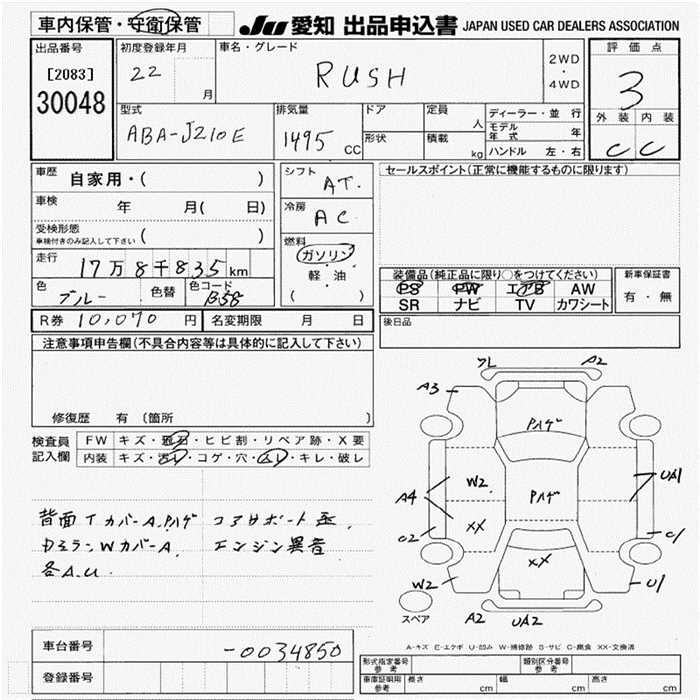 車内保管・守衛保管
JU 愛知 出品申込書 JAPAN USED CAR DEALERS ASSOCIATION
出品番号
[2083]
30048
初度登録年月
22 月
車名・グレード
RUSH
2WD
・
4WD
評価点
3
外装 内装
C C
型式
ABA-J210E
排気量
1495 CC
ドア
形状
定員 人
積載 kg
ディーラー・並行
モデル年式 年
ハンドル 左・右
車歴
自家用・( )
車検
年 月( 日)
受検形態
車検付きのみ記入して下さい ( )
走行
17万8千835km
色
ブルー
色替
色コード
B58
シフト
AT.
冷房
AC
燃料
ガソリン
・
軽油
( )
セールスポイント(正常に機能するものに限ります)
装備品(純正品に限り○をつけてください)
PS PW エアB AW
SR ナビ TV カワシート
新車保証書
有・無
R券 10,070 円
名変期限 月 日
後日品
注意事項申告欄(不具合内容等は具体的に記入して下さい)
修復歴 有 〔箇所 〕
検査員
記入欄
FW キズ・飛石・ヒビ割・リペア跡・X要
内装 キズ・汚れ・コゲ・穴・スレ・キレ・破レ
背面TカバーA.Pハゲ コアサポート歪.
カエランWカバーA. エンジン異音
各A.U.
フL A2
A3
Pハゲ
W2
Pハゲ
UA1
A4
XX
C2
C1
XX
W2
U1
スペア
A2 UA2
A-キズ E-エクボ U-凹み W-補修跡 S-サビ C-腐食 XX-交換済
車台番号
-0034850
登録番号
形式指定番号
参考
類別区分番号
参考
車庫証明用
参考
長さ cm
幅 cm
高さ cm